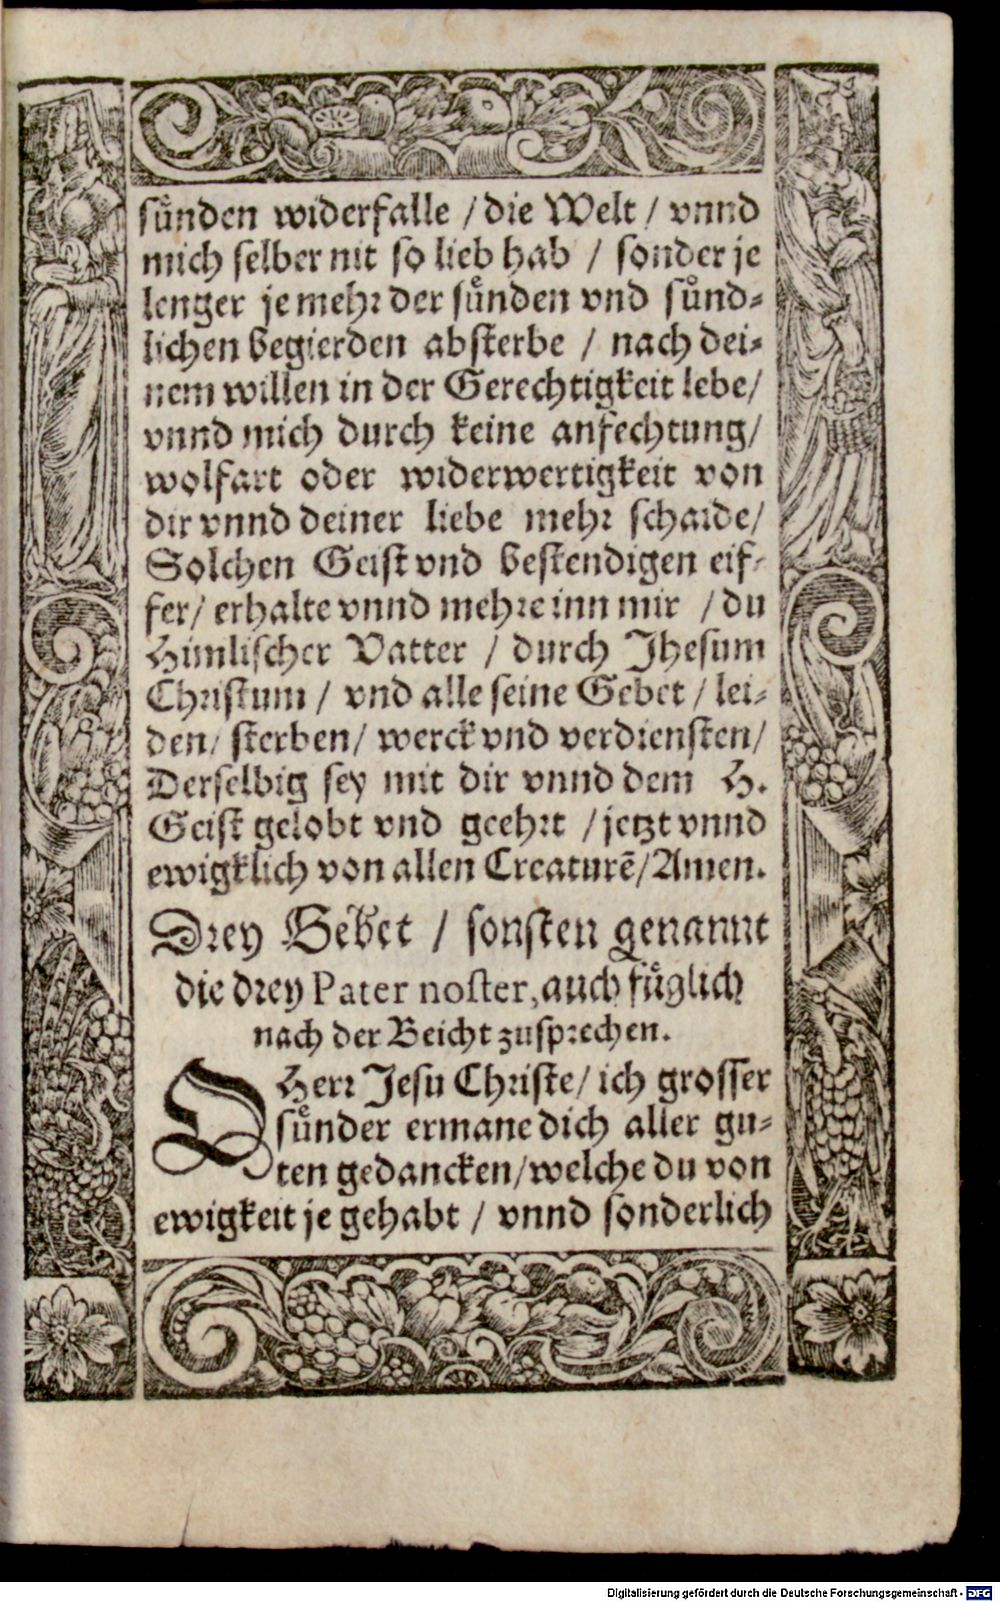 sünden widerfalle / die Welt / vnnd
mich selber nit so lieb hab / sonder je
lenger je mehr der sünden vnd sünd-
lichen begierden absterbe / nach dei-
nem willen in der Gerechtigkeit lebe /
vnnd mich durch keine anfechtung /
wolfart oder widerwertigkeit von
dir vnnd deiner liebe mehr schaide /
Solchen Geist vnd bestendigen eif-
fer / erhalte vnnd mehre inn mir / du
Himlischer Vatter / durch Jhesum
Christum / vnd alle seine Gebet / lei-
den / sterben / werck vnd verdiensten /
Derselbig sey mit dir vnnd dem H.
Geist gelobt vnd geehrt / jetzt vnnd
ewigklich von allen Creaturē / Amen.
Drey Gebet / sonsten genannt
die drey Pater noster, auch füglich
nach der Beicht zusprechen.
O Herr Jesu Christe / ich grosser
sünder ermane dich aller gu-
ten gedancken / welche du von
ewigkeit je gehabt / vnnd sonderlich
Digitalisierung gefördert durch die Deutsche Forschungsgemeinschaft - DFG